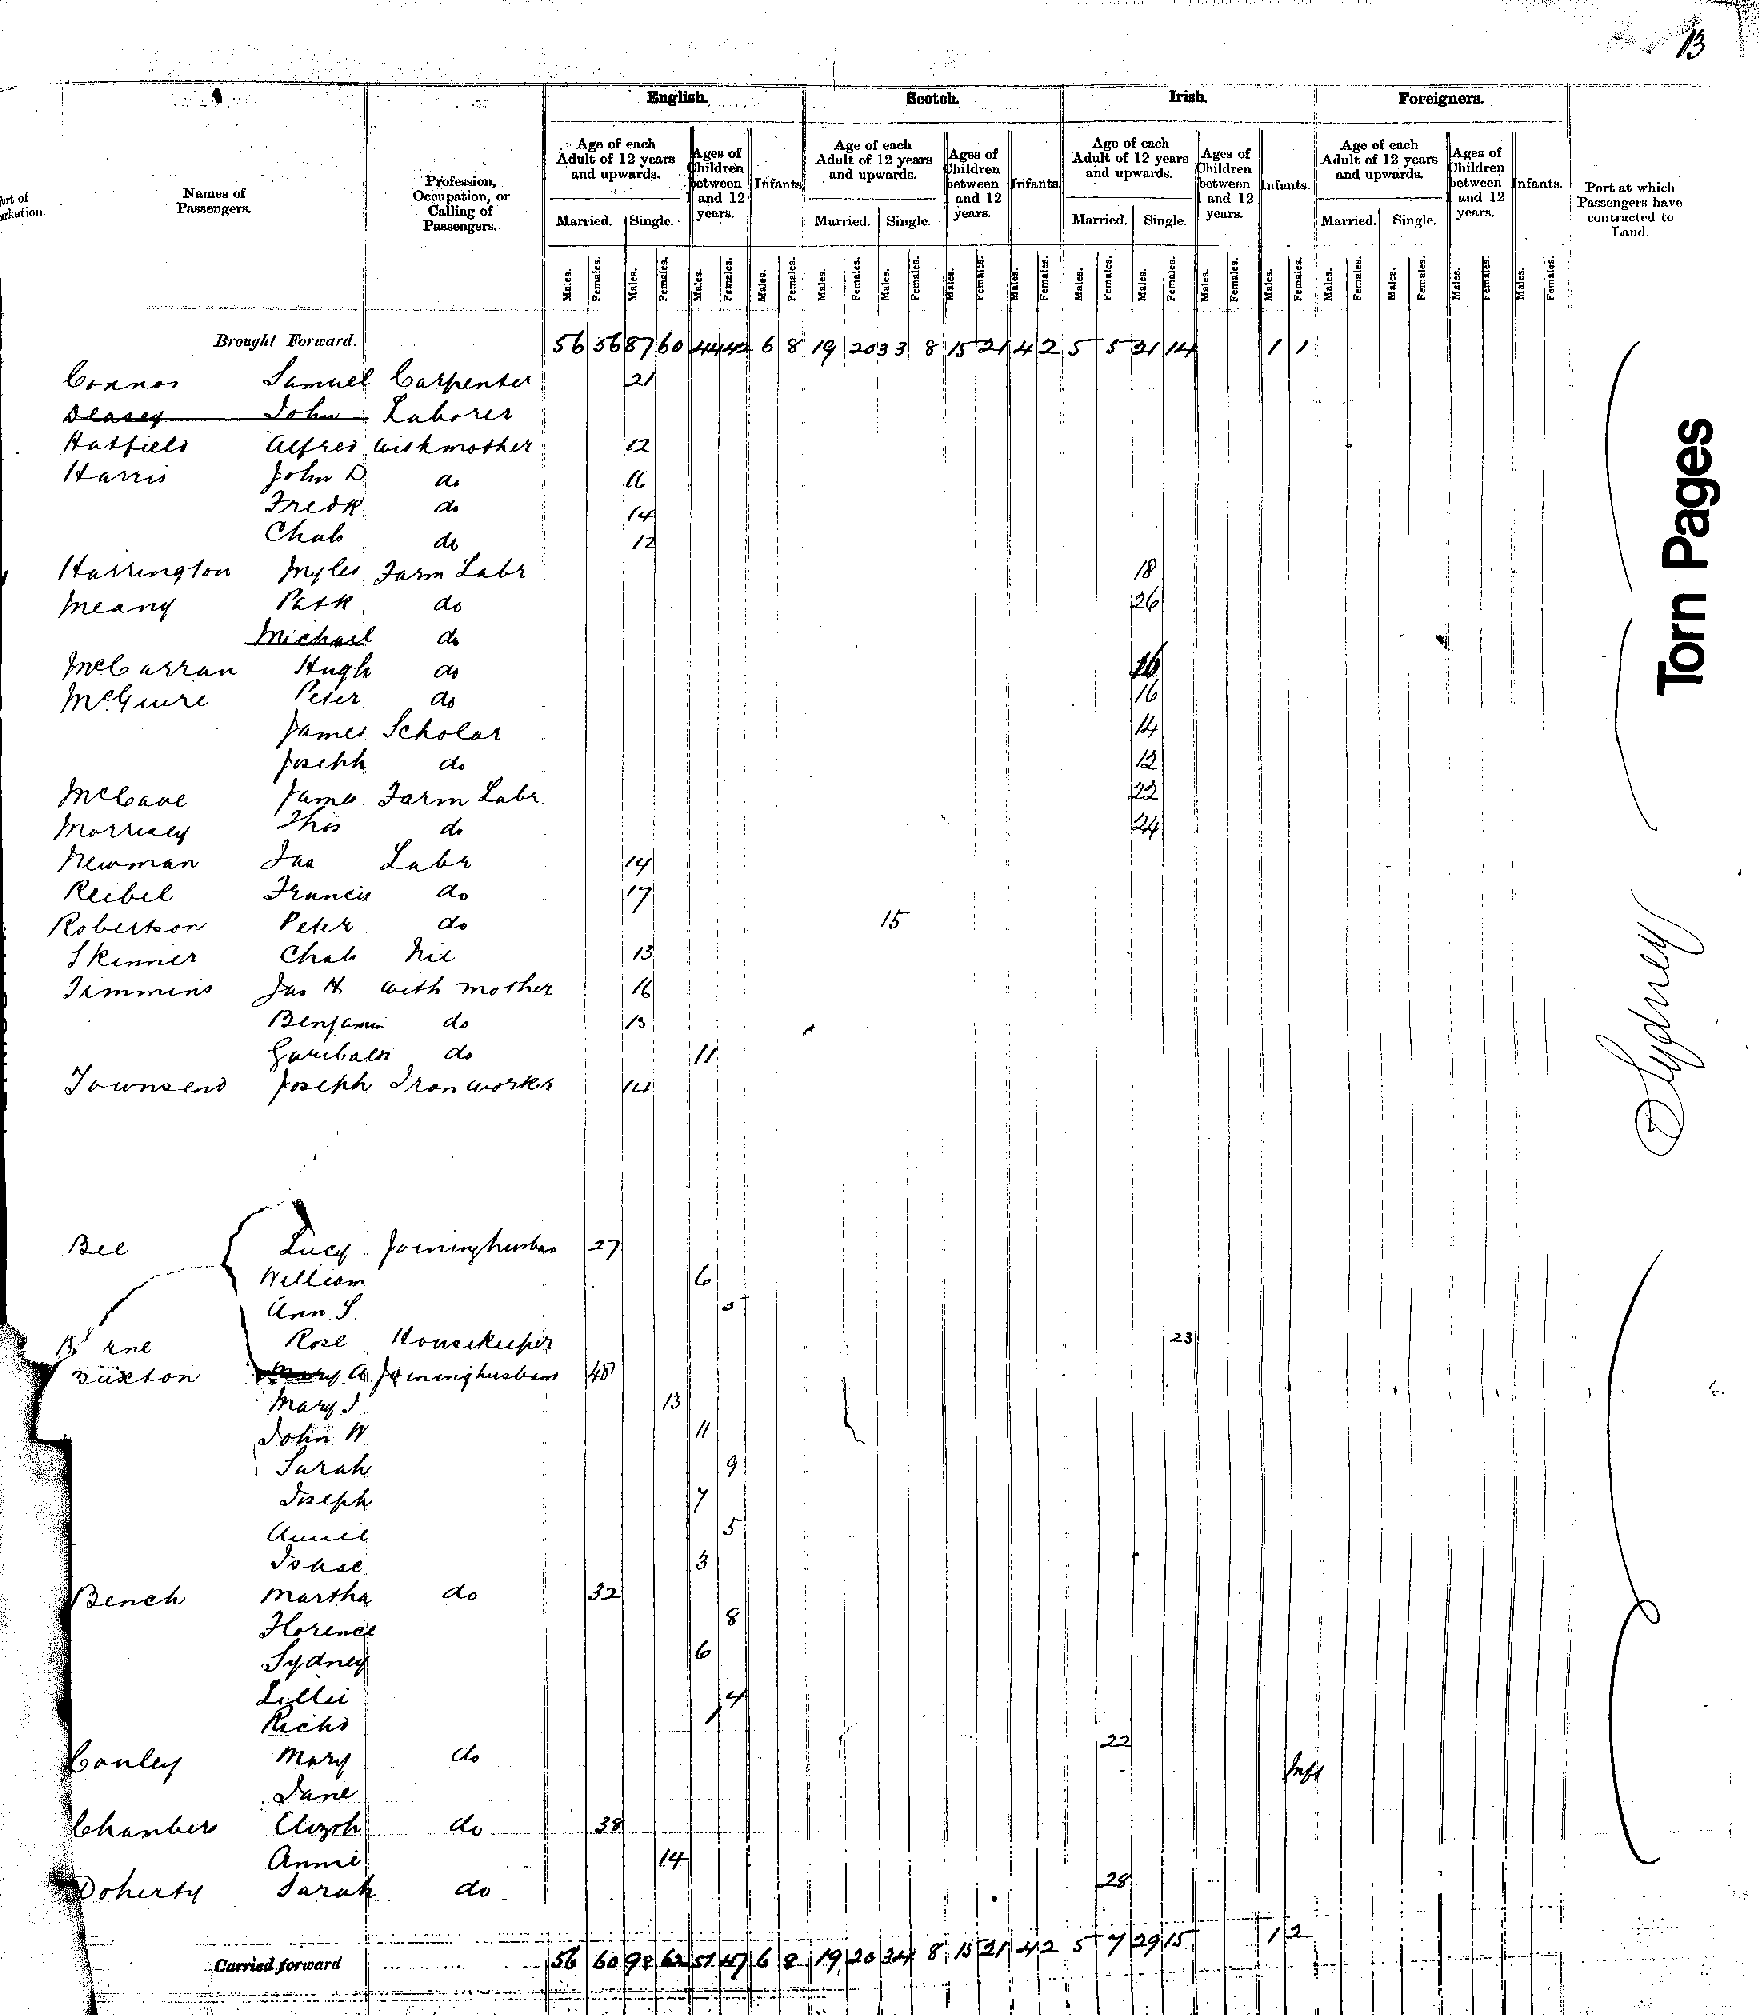 13
English. Scotch. Irish. Foreigners.
Names of Passengers. Profession, Occupation, or Calling of Passengers. Age of each Adult of 12 years and upwards. Ages of Children between and 12 years. Infants. Age of each Adult of 12 years and upwards. Ages of Children between and 12 years. Infants. Age of each Adult of 12 years and upwards. Ages of Children between and 12 years. Infants. Age of each Adult of 12 years and upwards. Ages of Children between and 12 years. Infants. Port at which Passengers have contracted to Land.
Married. Single. Married. Single. Married. Single. Married. Single.
Males. Females. Males. Females. Males. Females. Males. Females. Males. Females. Males. Females. Males. Females. Males. Females. Males. Females. Males. Females. Males. Females. Males. Females. Males. Females. Males. Females. Males. Females. Males. Females.
Brought Forward. 56 56 87 60 44 42 6 8 19 20 33 8 15 21 4 2 5 5 21 14 1 1
Connor Samuel Carpenter 21
Deasey John Laborer
Hatfield Alfred with mother 12
Harris John D do 16
Fredk do 14
Chas do 12
Harrington Myles Farm Labr 18
Meany Patk do 26
Michael do
McCarran Hugh do
McGuire Peter do 16
James Scholar 14
Joseph do 12
McCave James Farm Labr 22
Morrisey Thos do 24
Newman Jas Labr 14
Reibel Francis do 17
Robertson Peter do 15
Skinner Chas Nil 13
Timmins Jas H with mother 16
Benjamin do 13
Garibaldi do 11
Townsend Joseph Iron worker 14
Bee Lucy Joining husban 27
William 6
Ann S.
Rose Housekeeper 23
Buxton Mary A Joining husband 48
Mary J 13
John W 11
Sarah 9
Joseph 7
Annie 5
Isaac 3
Bench Martha do 32
Florence 8
Sydney 6
Lillie 4
Richd 1
Conley Mary do 22
Jane Inft
Chambers Elizth do 38
Annie 14
Doherty Sarah do 28
Carried forward 56 60 98 62 51 47 6 8 19 20 34 8 15 21 4 2 5 7 29 15 1 2
Torn Pages
Sydney